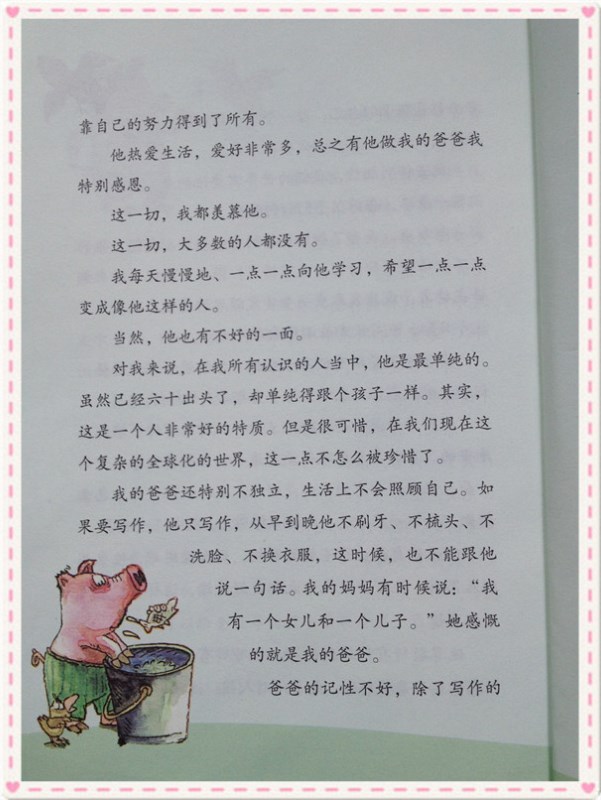 靠自己的努力得到了所有。
他热爱生活，爱好非常多，总之有他做我的爸爸我
特别感恩。
这一切，我都羡慕他。
这一切，大多数的人都没有。
我每天慢慢地、一点一点向他学习，希望一点一点
变成像他这样的人。
当然，他也有不好的一面。
对我来说，在我所有认识的人当中，他是最单纯的。
虽然已经六十出头了，却单纯得跟个孩子一样。其实，
这是一个人非常好的特质。但是很可惜，在我们现在这
个复杂的全球化的世界，这一点不怎么被珍惜了。
我的爸爸还特别不独立，生活上不会照顾自己。如
果要写作，他只写作，从早到晚他不刷牙、不梳头、不
洗脸、不换衣服，这时候，也不能跟他
说一句话。我的妈妈有时候说：“我
有一个女儿和一个儿子。”她感慨
的就是我的爸爸。
爸爸的记性不好，除了写作的